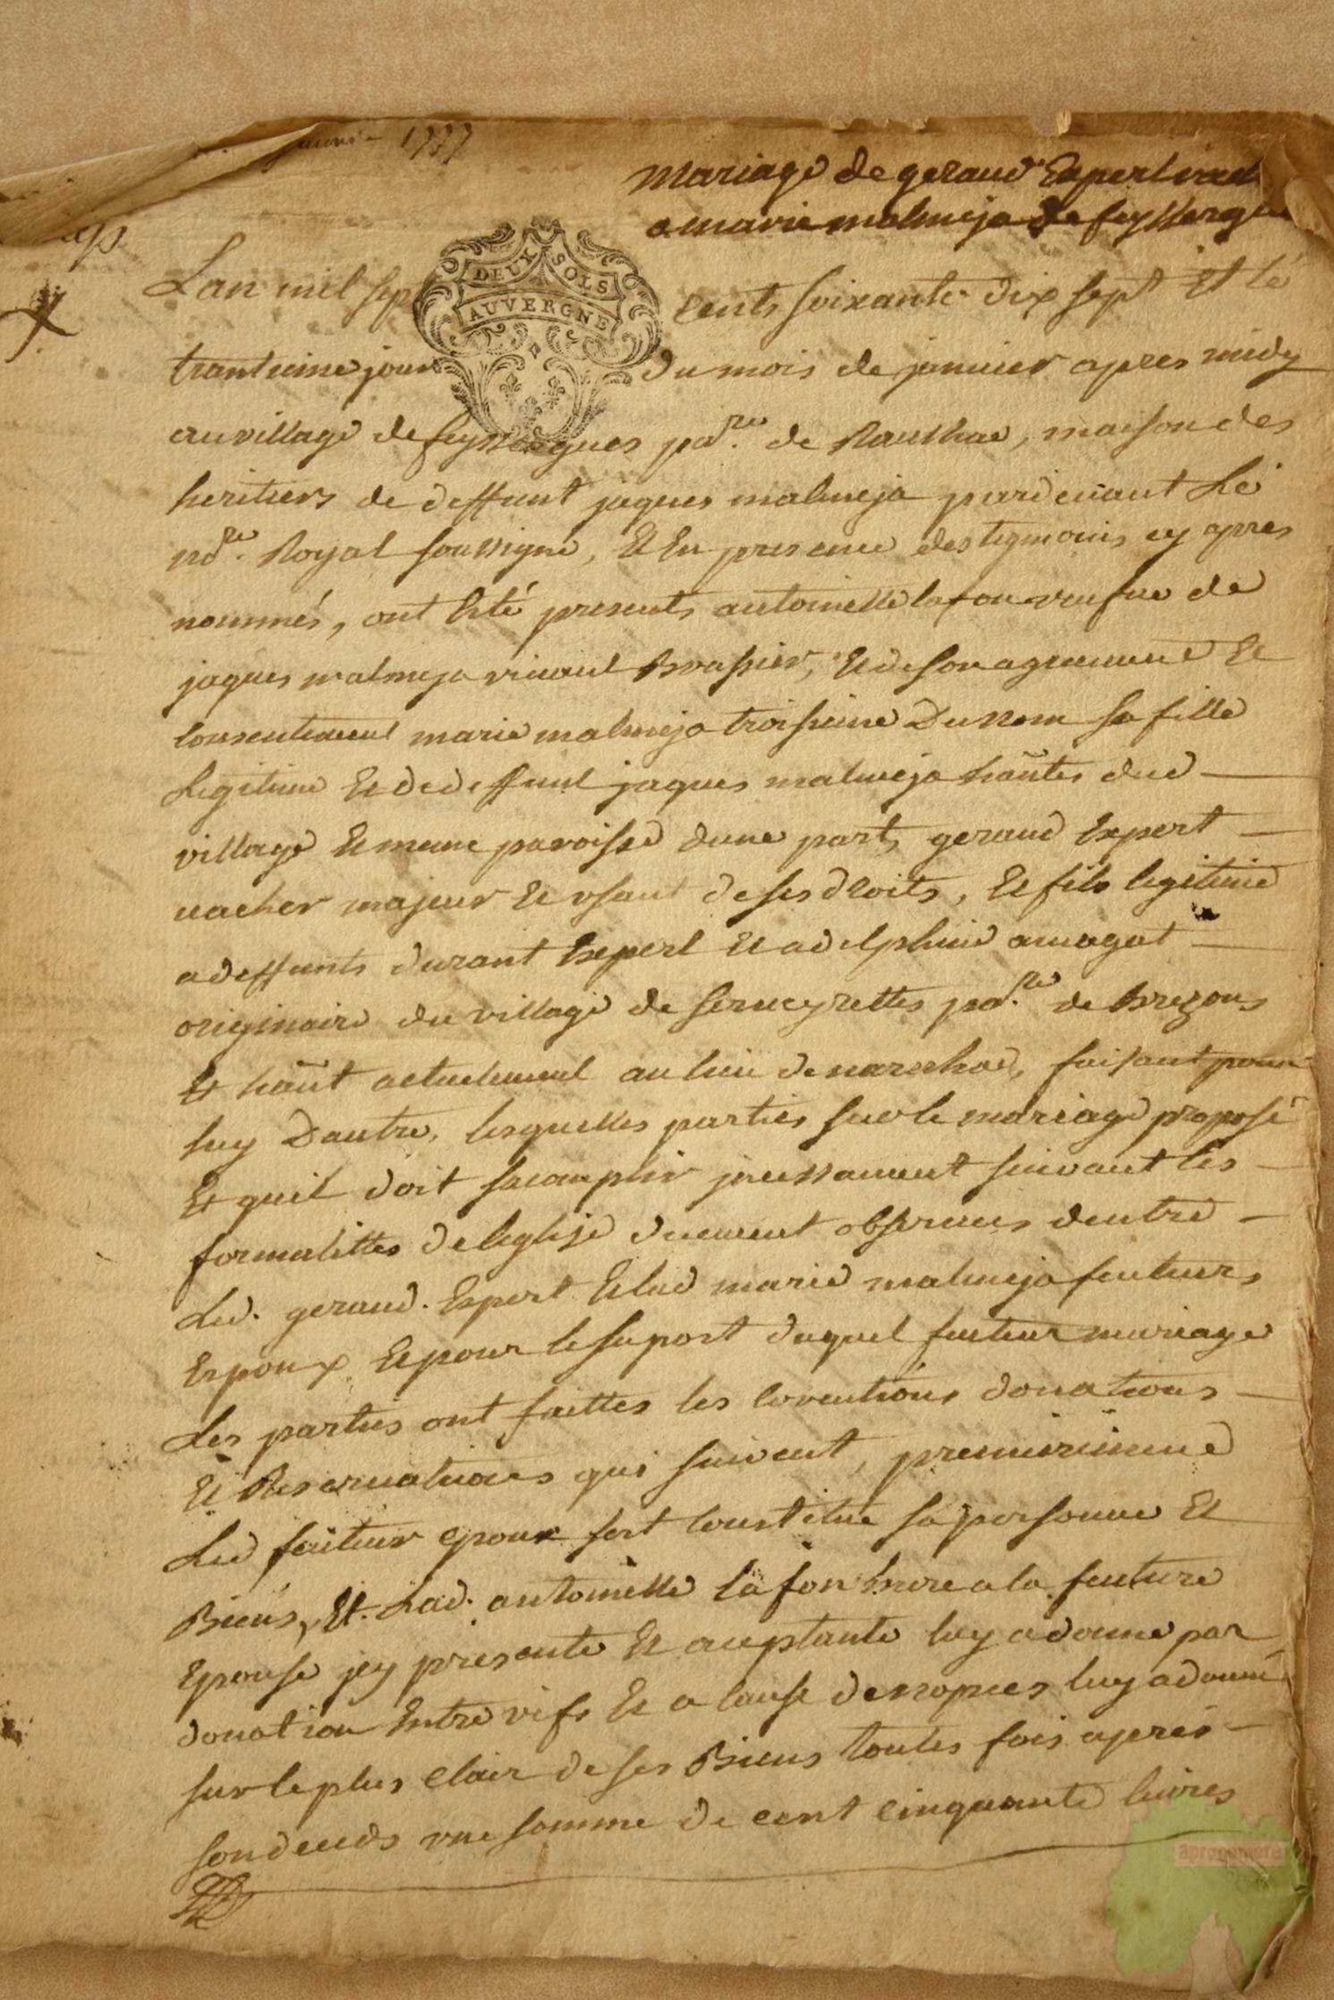 janvier 1777
mariage de geraud Expert vacher
a marie malmeja de feyssergues
DEUX SOLS
AUVERGNE
Lan mil sept cents soixante dix sept Et le
trantieme jour du mois de janvier apres midy
au village de feyssergues pa.sse de Raulhac, maison des
heritiers de deffunt jaques malmeja pardevant Le
no.re Royal soussigné, Et En presence des temoins cy apres
nommés, ont Eté presents antoinette lafon veufve de
jaques malmeja vivant Brassier, Et de son agrement Et
consentement marie malmeja troisieme Du nom sa fille
Legitime Et dud deffunt jaques malmeja hãntes dud
village Et meme paroisse dune part, geraud Expert
vacher majeur Et usant de ses droits, Et fils legitime
a deffunts durant Expert Et a delphine amagat
originaire du village de serveyrettes pa.sse de Brezons
Et hãnt actuelement au lieu de narnhac, faisant pour
luy Dautre, lesquelles parties sur le mariage proposé
Et quil doit sacomplir jncessament suivant les
formalittes de leglise duement observees dentre
Led. geraud. Expert Et lad marie malmeja futeurs
Epoux Et pour le suport duquel futeur mariage
Les parties ont faittes les coventions donations
Et Reservations qui suivent, premierement
Led futeur epoux sest constitue sa personne Et
Biens, Et. Lad. antoinette lafon mere a la feuture
Epouse jcy presente Et aceptante luy a donne par
donation Entre vifs Et a cause de nopces luy a donné
sur le plus clair de ses Biens toutes fois apres
son deceds une somme de cent cinquante livres
aprogemere